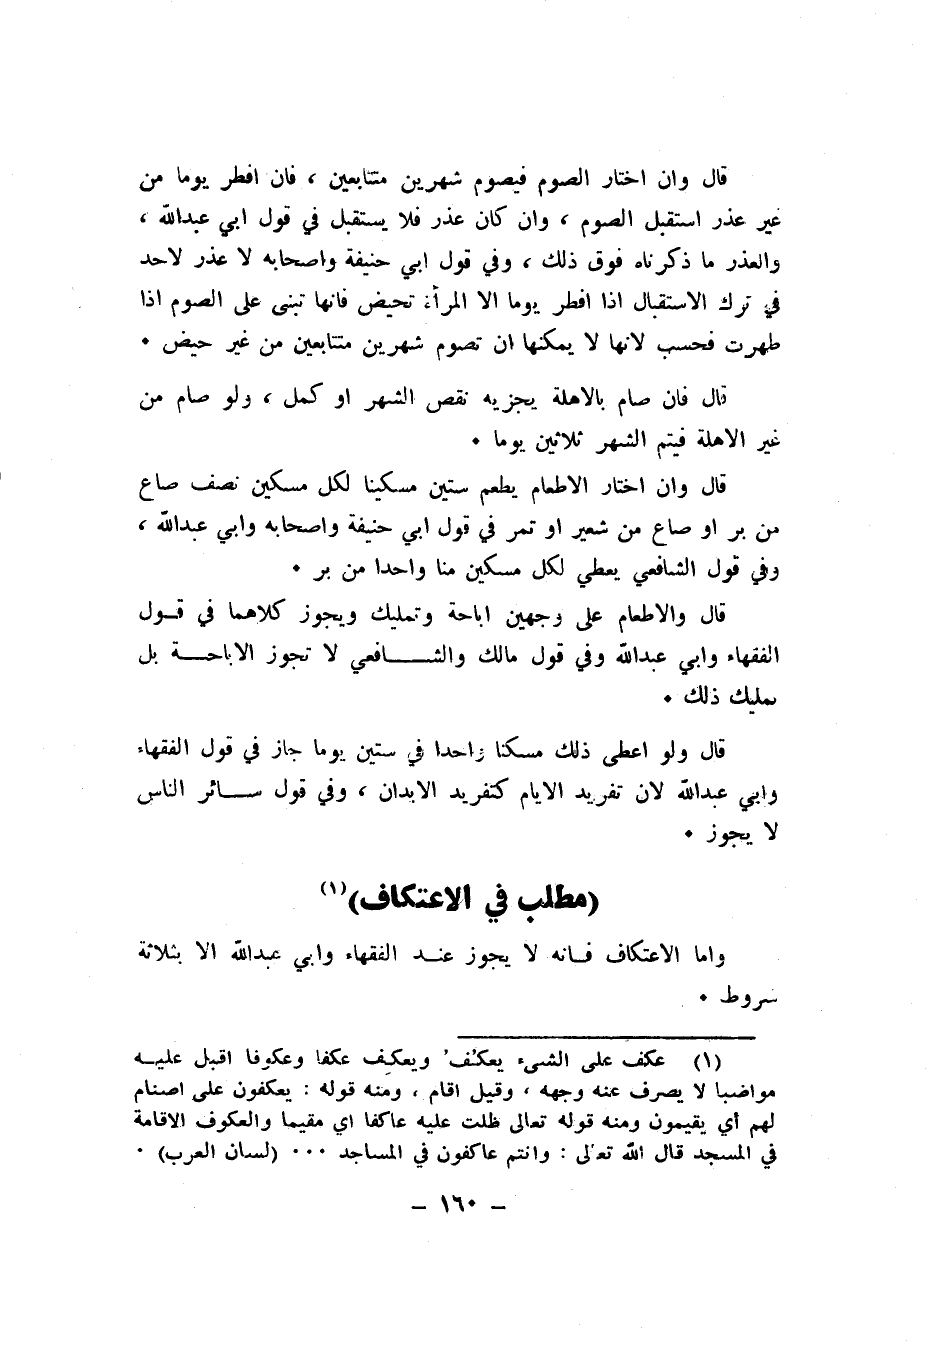 قال وان اختار الصوم فيصوم شهرين متتابعين ، فان افطر يوما من
غير عذر استقبل الصوم ، وان كان عذر فلا يستقبل في قول ابي عبدالله ،
والعذر ما ذكرناه فوق ذلك ، وفي قول ابي حنيفة واصحابه لا عذر لاحد
في ترك الاستقبال اذا افطر يوما الا المرأة تحيض فانها تبنى على الصوم اذا
طهرت فحسب لانها لا يمكنها ان تصوم شهرين متتابعين من غير حيض ٠
قال فان صام بالاهلة يجزيه نقص الشهر او كمل ، ولو صام من
غير الاهلة فيتم الشهر ثلاثين يوما ٠
قال وان اختار الاطعام يطعم ستين مسكينا لكل مسكين نصف صاع
من بر او صاع من شعير او تمر في قول ابي حنيفة واصحابه وابي عبدالله ،
وفي قول الشافعي يعطي لكل مسكين منا واحدا من بر ٠
قال والاطعام على وجهين اباحة وتمليك ويجوز كلاهما في قول
الفقهاء وابي عبدالله وفي قول مالك والشافعي لا تجوز الاباحة بل
يمليك ذلك ٠
قال ولو اعطى ذلك مسكنا واحدا في ستين يوما جاز في قول الفقهاء
وابي عبدالله لان تفريد الايام كتفريد الابدان ، وفي قول سائر الناس
لا يجوز ٠
(مطلب في الاعتكاف)(١)
واما الاعتكاف فانه لا يجوز عند الفقهاء وابي عبدالله الا بثلاثة
شروط ٠
(١) عكف على الشىء يعكُف ويعكِف عكفا وعكوفا اقبل عليه
مواضبا لا يصرف عنه وجهه ، وقيل اقام ، ومنه قوله : يعكفون على اصنام
لهم أي يقيمون ومنه قوله تعالى ظلت عليه عاكفا اي مقيما والعكوف الاقامة
في المسجد قال الله تعالى : وانتم عاكفون في المساجد ٠٠٠ (لسان العرب) ٠
– ١٦٠ –